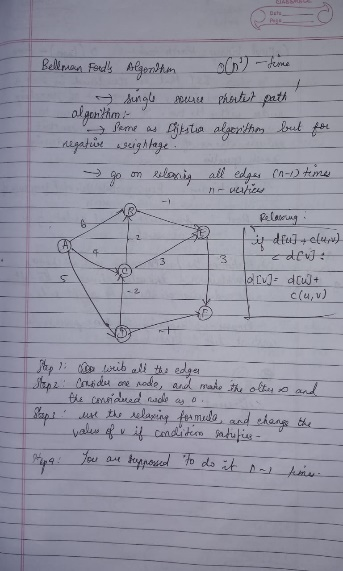 CLASSMATE
Date
Page
Bellman Ford's Algorithm O(n²) - time
→ single source shortest path
algorithm:-
→ Same as Dijkstra algorithm but for
negative weightage.
→ go on relaxing all edges (n-1) times
n - vertices
-1
B
6
A
4
2
C
3
E
3
5
-2
D
-1
F
Relaxing:
if d[u] + c(u,v)
< d[v] :
d[v] = d[u] +
c(u,v)
Step 1: write all the edges
Step 2: Consider one node, and make the other ∞ and
the considered node as 0.
Step 3: use the relaxing formula, and change the
value of v if condition satisfies -
Step 4: You are supposed to do it n-1 times.